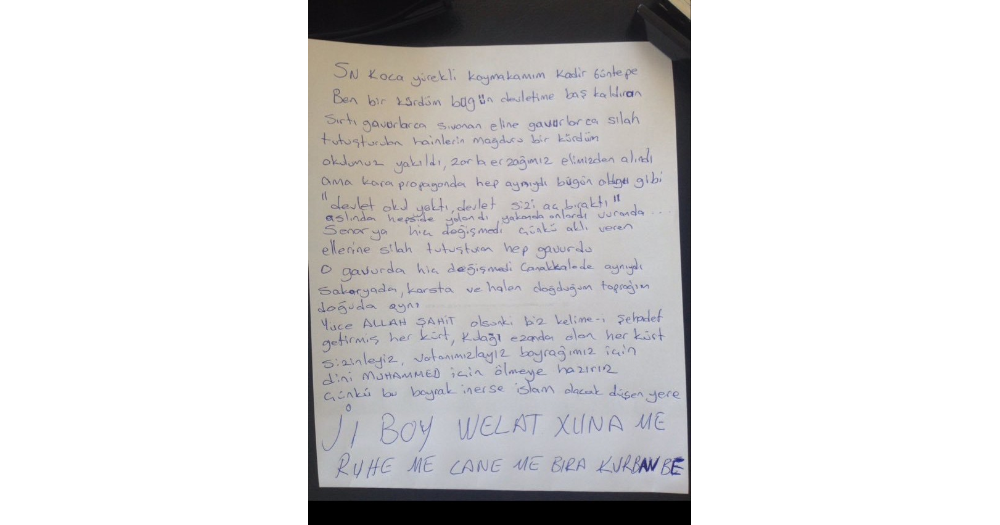 SN Koca yürekli kaymakamım Kadir Güntepe
Ben bir kürdüm bugün devletime baş kaldıran
Sırtı gavurlarca sıvanan eline gavurlarca silah
tutuşturulan hainlerin mağduru bir kürdüm
okulumuz yakıldı, zorla erzağımız elimizden alındı
ama kara propaganda hep aynıydı bugün olduğu gibi
"devlet okul yaktı, devlet sizi aç bıraktı"
aslında hepside yalandı, yakanda onlardı vuranda...
Senarya hiç değişmedi çünkü aklı veren
ellerine silah tutuşturan hep gavurdu
O gavurda hiç değişmedi Çanakkalede aynıydı
Sakaryada, karsta ve halen doğduğum toprağım
doğuda aynı
Yüce ALLAH ŞAHİT olsunki biz kelime-i Şehadet
getirmiş her kürt, kulağı ezanda olan her kürt
sizinleyiz, vatanımızlayız bayrağımız için
dini MUHAMMED için ölmeye hazırız
çünkü bu bayrak inerse islam olacak düşen yere
Jİ BOY WELAT XUNA ME
RUHE ME CANE ME BIRA KURBAN BE